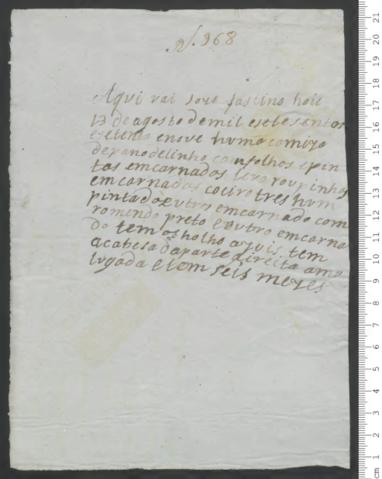 Nº. 968
Aqui vai hoie
13 de agosto de mil esetesentos
esetenta enove huma camiza
de pano de linho com folhos epin
tas emcarnados leva roupinhas
emcarnadas coeiro tres hum
pintado eutro emcarnado com
remendo preto eoutro emcarna
do tem os holho azuis tem
acabesa da parte direita amo
lgada etem seis mezes